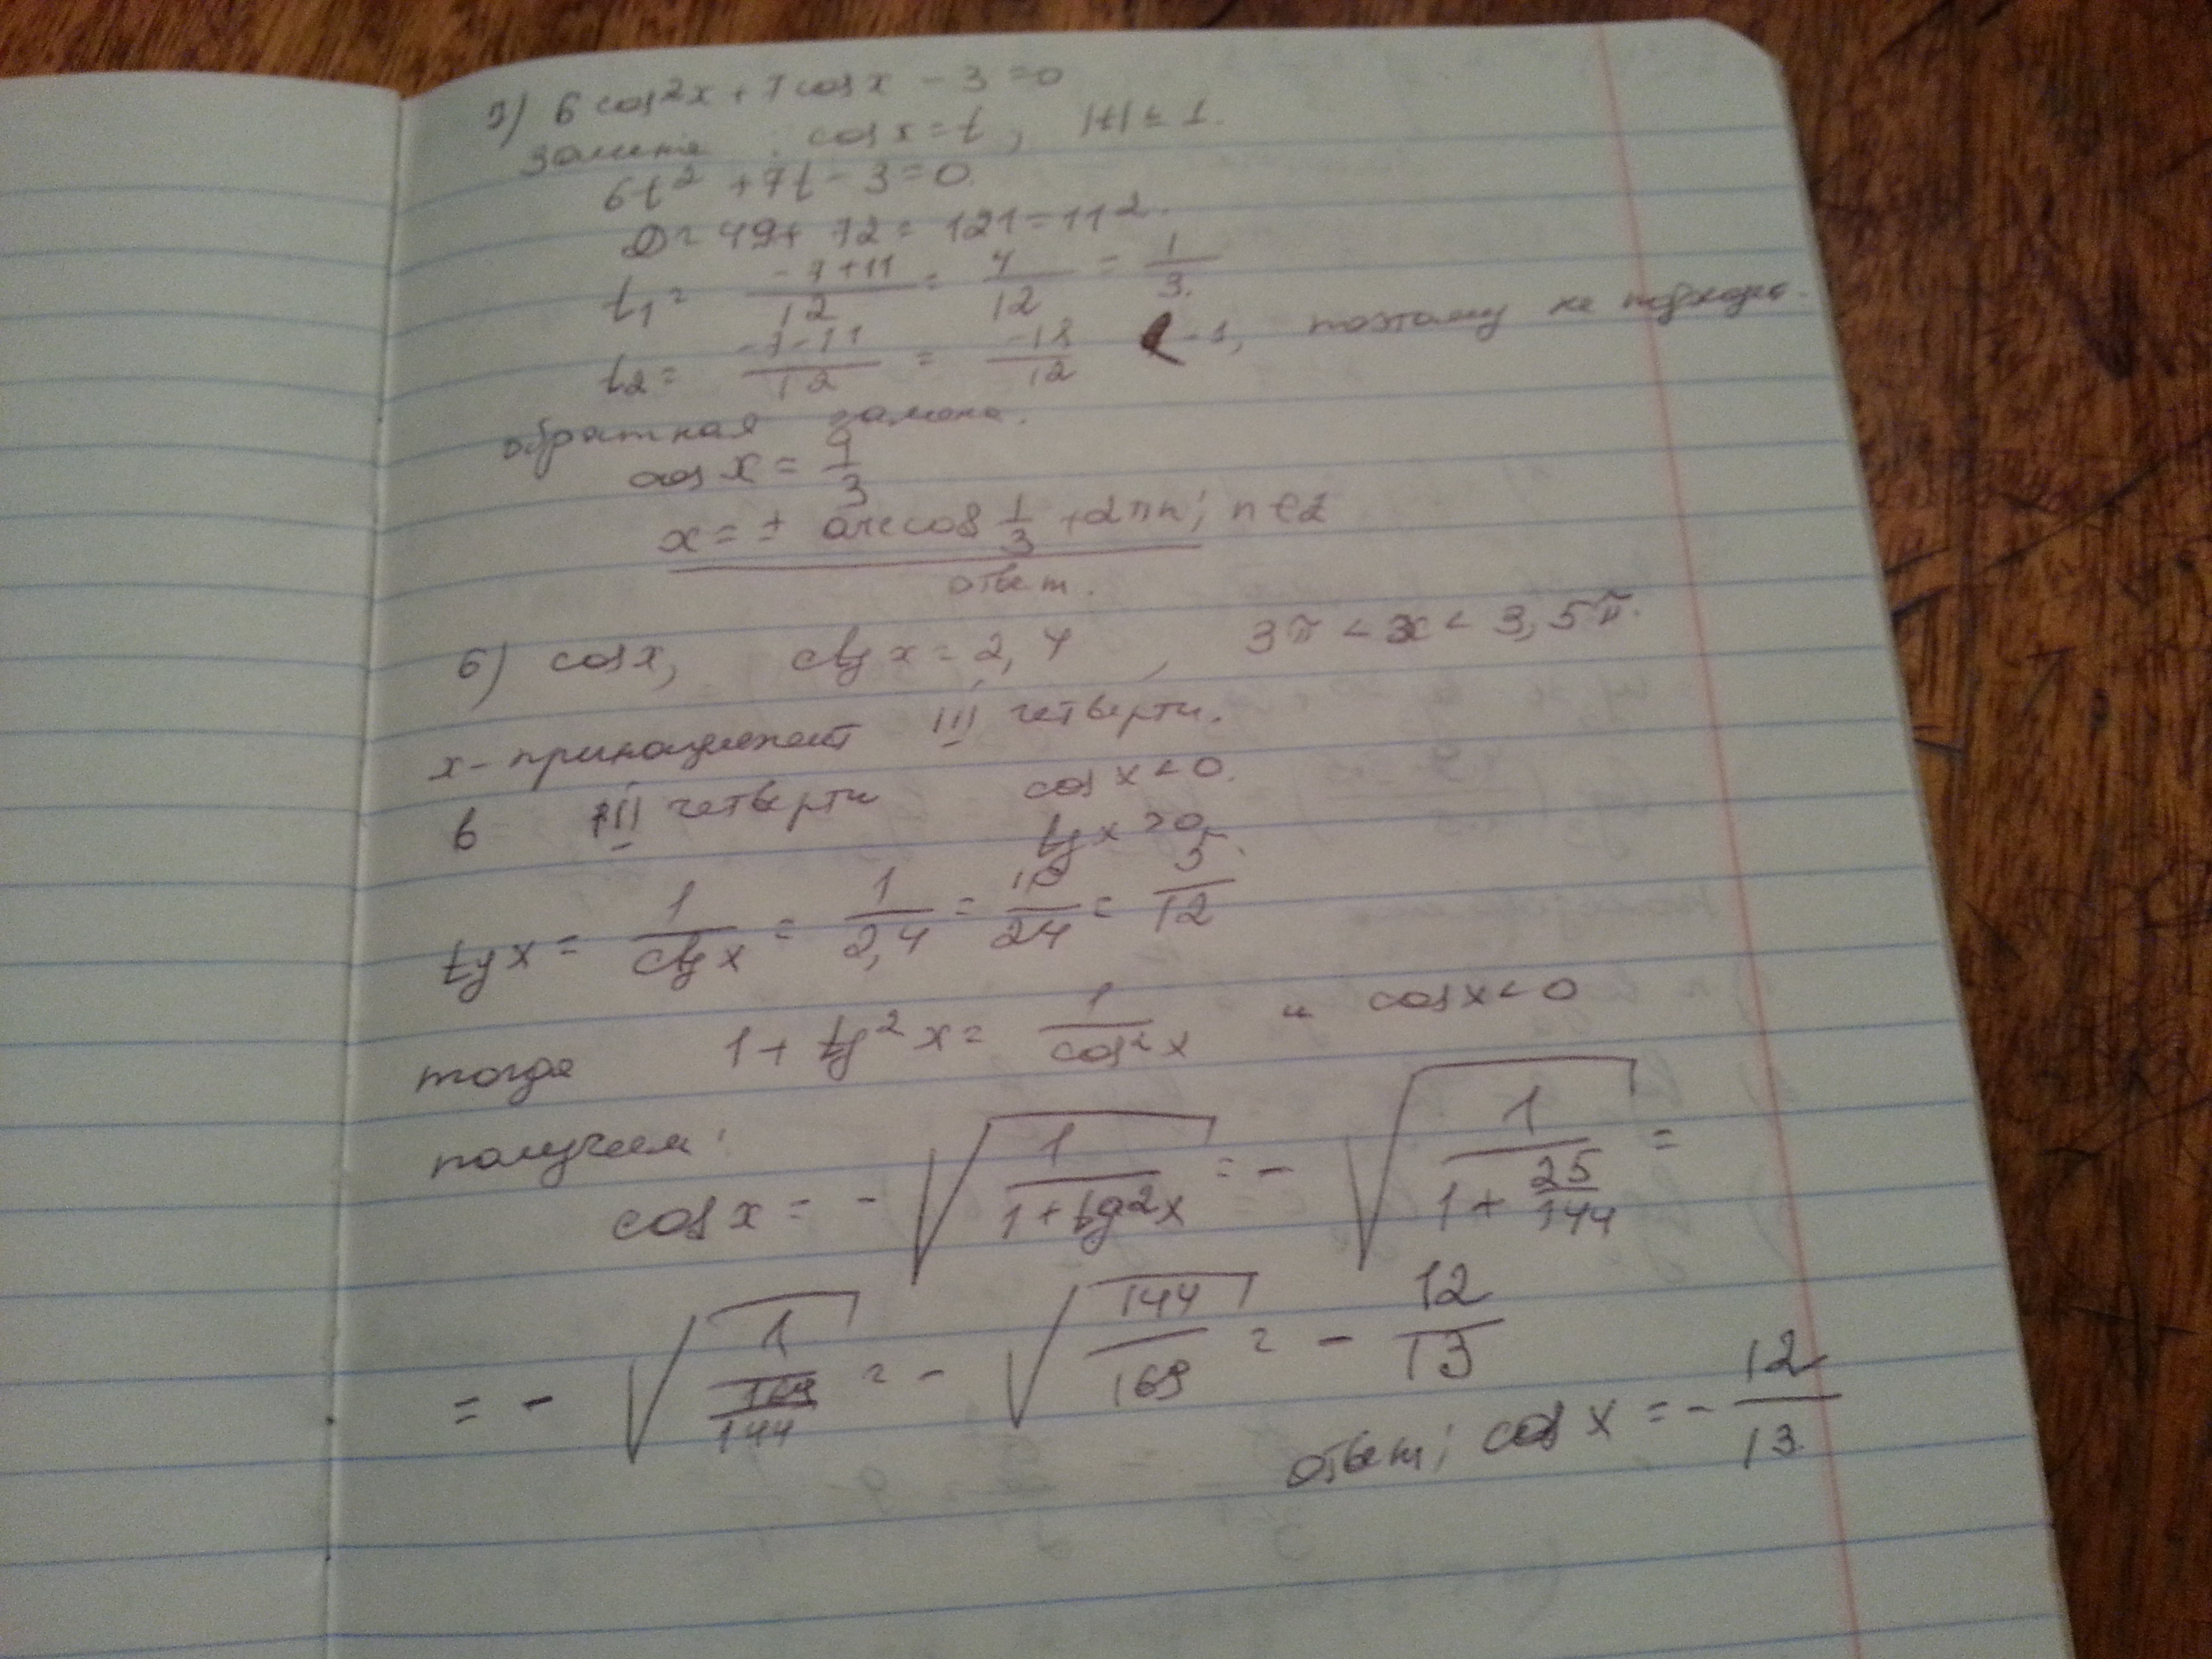 5) 6 cos²x + 7 cos x - 3 = 0
замена : cos x = t, |t| ≤ 1.
6t² + 7t - 3 = 0.
D = 49 + 72 = 121 = 11².
t₁ = (-7+11)/12 = 4/12 = 1/3.
t₂ = (-7-11)/12 = -18/12 < -1, поэтому не подходит.
обратная замена.
cos x = 1/3
x = ± arccos 1/3 + 2πn; n ∈ Z
ответ.
6) cos x, ctg x = 2,4, 3π < x < 3,5π.
x - принадлежит III четверти.
в III четверти cos x < 0.
tg x > 0
tg x = 1/ctg x = 1/2,4 = 10/24 = 5/12.
тогда 1 + tg²x = 1/cos²x и cos x < 0
получаем:
cos x = - √(1/(1 + tg²x)) = - √(1/(1 + 25/144)) =
= - √(1/(169/144)) = - √(144/169) = - 12/13
ответ; cos x = - 12/13